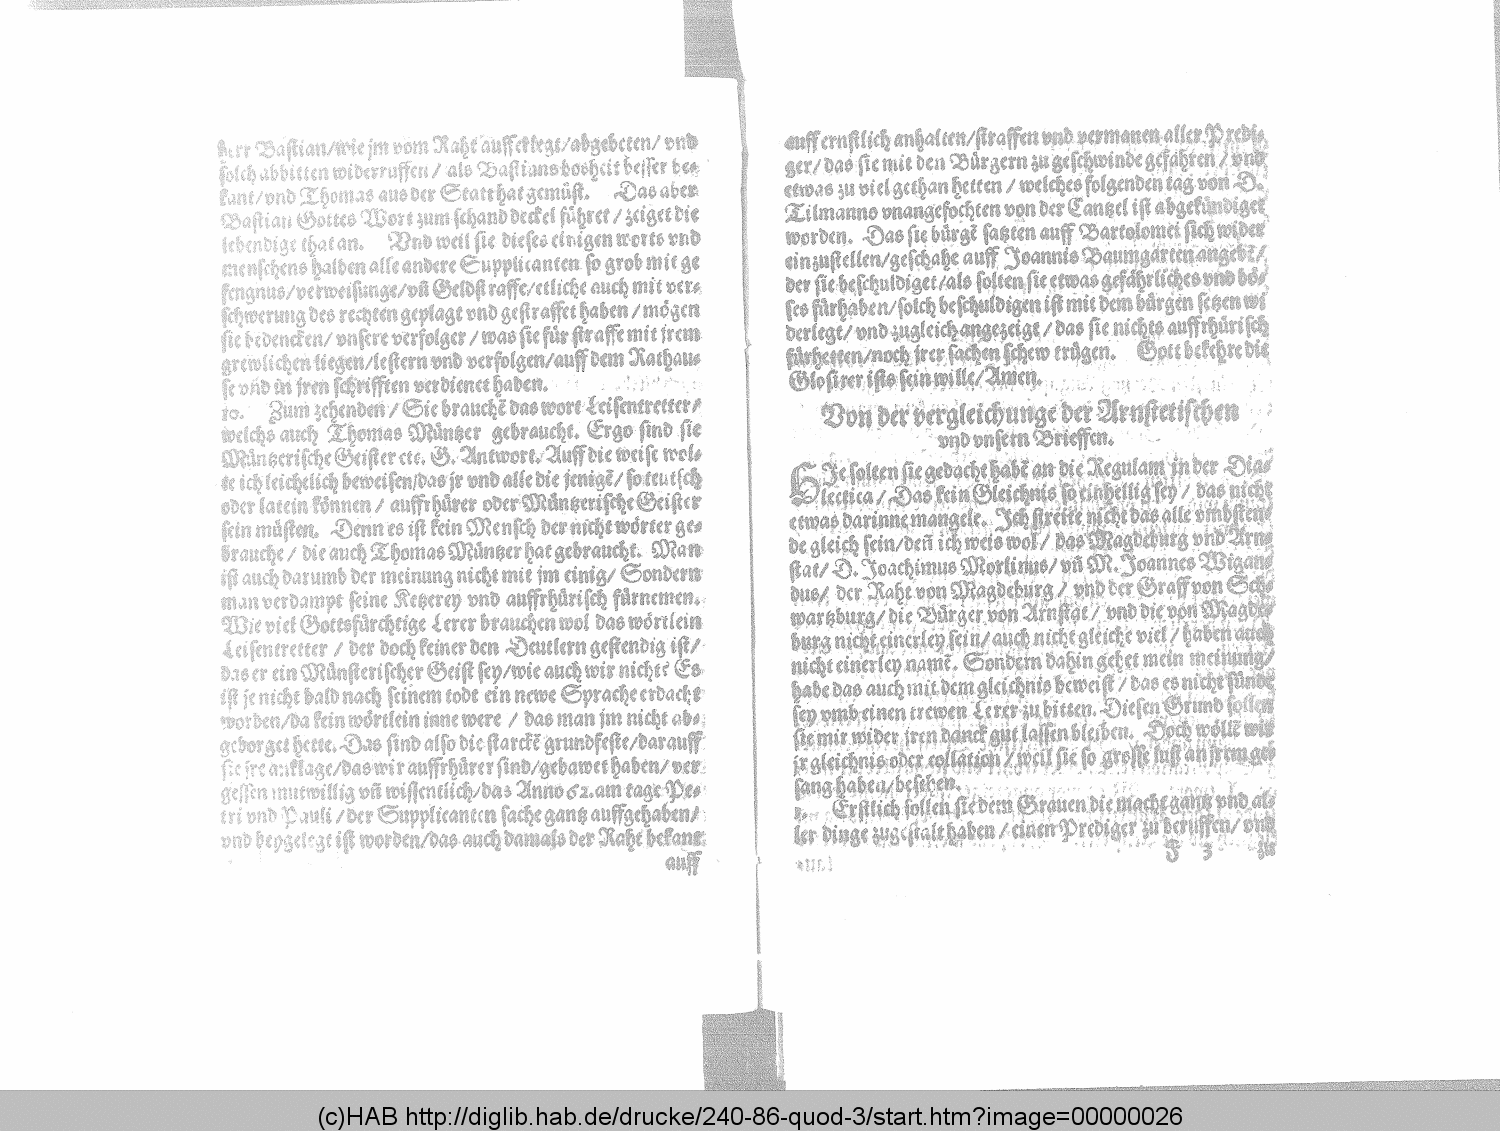 herr Bastian/wie jm vom Raht aufferlegt/abgebeten/ vnd
solch abbitten widerruffen/ als Bastians bosheit besser be⸗
kant/vnd Thomas aus der Statt hat gemüst. Das aber
Bastian Gottes Wort zum schand deckel führet / zeiget die
lebendige that an. Vnd weil sie dieses einigen worts vnd
menschens halben alle andere Supplicanten so grob mit ge
fengnus/verweisunge/vñ Geldstraffe/etliche auch mit ver⸗
schwerung des rechten geplagt vnd gestraffet haben / mögen
sie bedencken/ vnsere verfolger / was sie für straffe mit jrem
grewlichen liegen/lestern vnd verfolgen/auff dem Rathau⸗
se vnd in jren schrifften verdienet haben.
10. Zum zehenden/ Sie brauchē das wort Leisentretter/
welchs auch Thomas Müntzer gebraucht. Ergo sind sie
Müntzerische Geister etc. G. Antwort. Auff die weise wol⸗
te ich leichelich beweisen/das jr vnd alle die jenigē/ so teutsch
oder latein können / auffrhürer oder Müntzerische Geister
sein müsten. Denn es ist kein Mensch der nicht wörter ge⸗
brauche / die auch Thomas Müntzer hat gebraucht. Man
ist auch darumb der meinung nicht mit jm einig/ Sondern
man verdampt seine Ketzerey vnd auffrhürisch fürnemen.
Wie viel Gottsfürchtige Lerer brauchen wol das wörtlein
Leisentretter / der doch keiner den Deutlern gestendig ist/
das er ein Münsterischer Geist sey/wie auch wir nicht: Es
ist je nicht bald nach seinem tode ein newe Sprache erdacht
worden/da kein wörtlein inne were / das man jm nicht ab⸗
geborget hette. Das sind also die starckē grundfeste/darauff
sie jre anklage/das wir auffrhürer sind/gebawet haben/ ver
gessen mutwillig vñ wissentlich/das Anno 62. am tage Pe⸗
tri vnd Pauli / der Supplicanten sache gantz auffgehaben/
vnd beygelegt ist worden/das auch damals der Raht bekant
auff
auff ernstlich anhalten/straffen vnd vermanen aller Predi⸗
ger/ das sie mit den Bürgern zu geschwinde gefahren / vnd
etwas zu viel gethan hetten / welches folgenden tag von D.
Tilmanno vnangefochten von der Cantzel ist abgekündiget
worden. Das sie bürgē satzten auff Bartolomei sich wider
einzustellen/geschahe auff Joannis Baumgarten angebē/
der sie beschuldiget/als solten sie etwas gefährliches vnd bö⸗
ses fürhaben/solch beschuldigen ist mit dem bürgen setzen wi
derlegt/ vnd zugleich angezeigt / das sie nichts auffrhürisch
fürhetten/noch jrer sachen schew trügen. Gott bekehre die
Glosirer ists sein wille/Amen.
Von der vergleichunge der Arnstetischen
vnd vnsern Brieffen.
HJe solten sie gedacht habē an die Regulam in der Dia⸗
lectica / Das kein Gleichnis so einhellig sey / das nicht
etwas darinne mangele. Ich streite nicht das alle vmbsten⸗
de gleich sein/deñ ich weis wol/ das Magdeburg vnd Arn⸗
stat/ D. Joachimus Morlinus/ vñ M. Joannes Wigan⸗
dus/ der Raht von Magdeburg / vnd der Graff von Sch⸗
wartzburg/ die Bürger von Arnstat/ vnd die von Magde⸗
burg nicht einerley sein/ auch nicht gleiche viel / haben auch
nicht einerley namē. Sondern dahin gehet mein meinung/
habe das auch mit dem gleichnis beweist / das es nicht sünde
sey vmb einen trewen Lerer zu bitten. Diesen Grund sollen
sie mir wider jren danck gut lassen bleiben. Doch wollē wir
jr gleichnis oder collation / weil sie so grosse lust an jrem ge⸗
sang haben/besehen.
1. Erstlich sollen sie dem Grauen die macht gantz vnd al⸗
ler dinge zugestalt haben / einen Prediger zu beruffen/ vnd
F 3